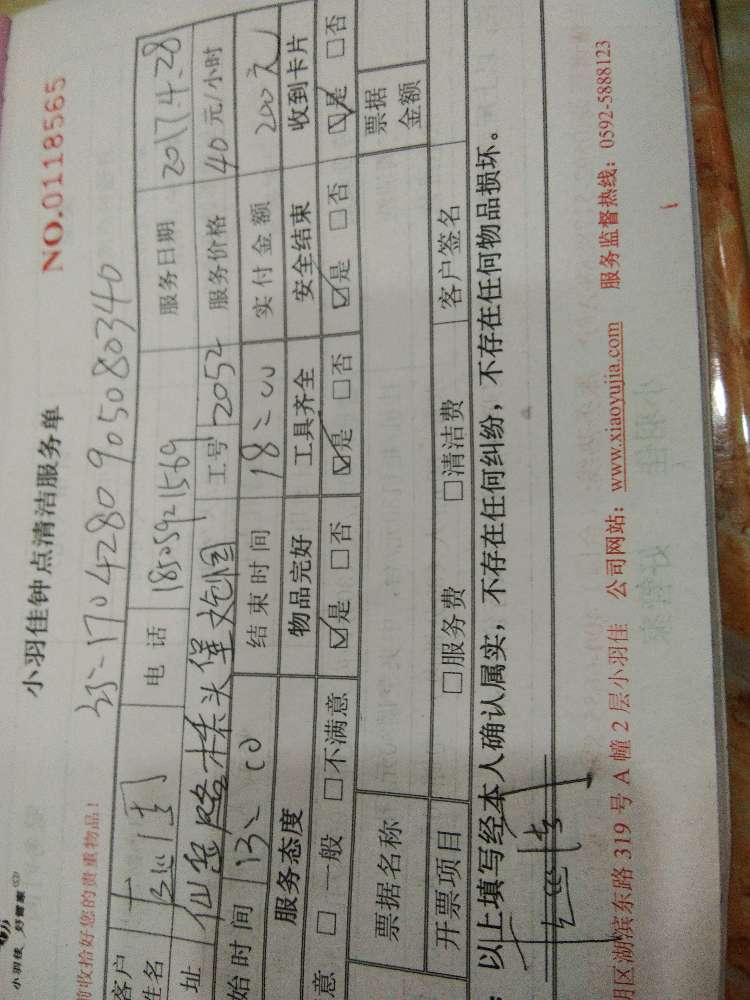 小羽佳 好管家
小羽佳钟点清洁服务单
NO.0118565
前收拾好您的贵重物品!
1704280905080340
客户姓名 电话 18505921569 服务日期 2017.4.28
址 工号 2052 服务价格 40元/小时
始时间 13:00 结束时间 18:00 实付金额 200元
服务态度 物品完好 工具齐全 安全结束 收到卡片
意 □一般 □不满意 ☑是 □否 ☑是 □否 ☑是 □否 ☑是 □否
票据名称 票据金额
开票项目 □服务费 □清洁费 客户签名
：以上填写经本人确认属实，不存在任何纠纷，不存在任何物品损坏。
明区湖滨东路 319 号 A 幢 2 层小羽佳 公司网站：www.xiaoyujia.com 服务监督热线：0592-5888123